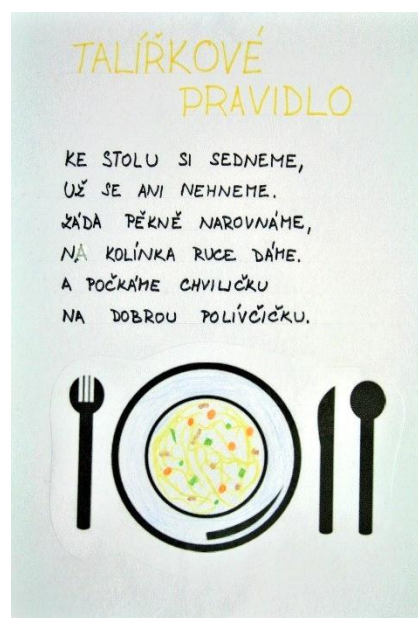 TALÍŘKOVÉ
PRAVIDLO
KE STOLU SI SEDNEME,
UŽ SE ANI NEHNEME.
ZÁDA PĚKNĚ NAROVNÁME,
NA KOLÍNKA RUCE DÁME.
A POČKÁME CHVILIČKU
NA DOBROU POLÍVČIČKU.